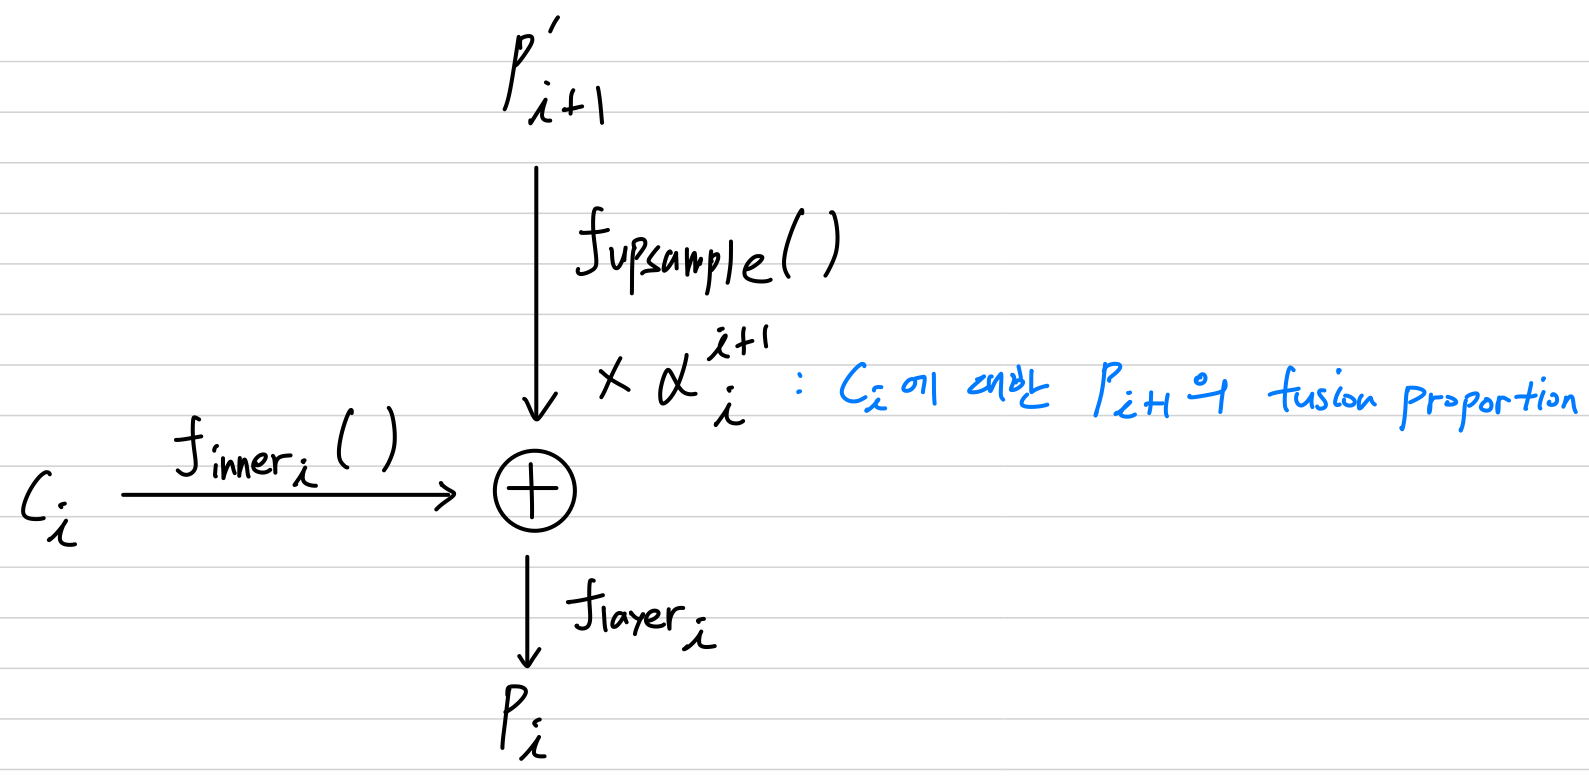 P'i+1
fupsample()
× αi^i+1 : Ci에 대한 Pi+1의 fusion proportion
finneri()
Ci
+
flayeri
Pi